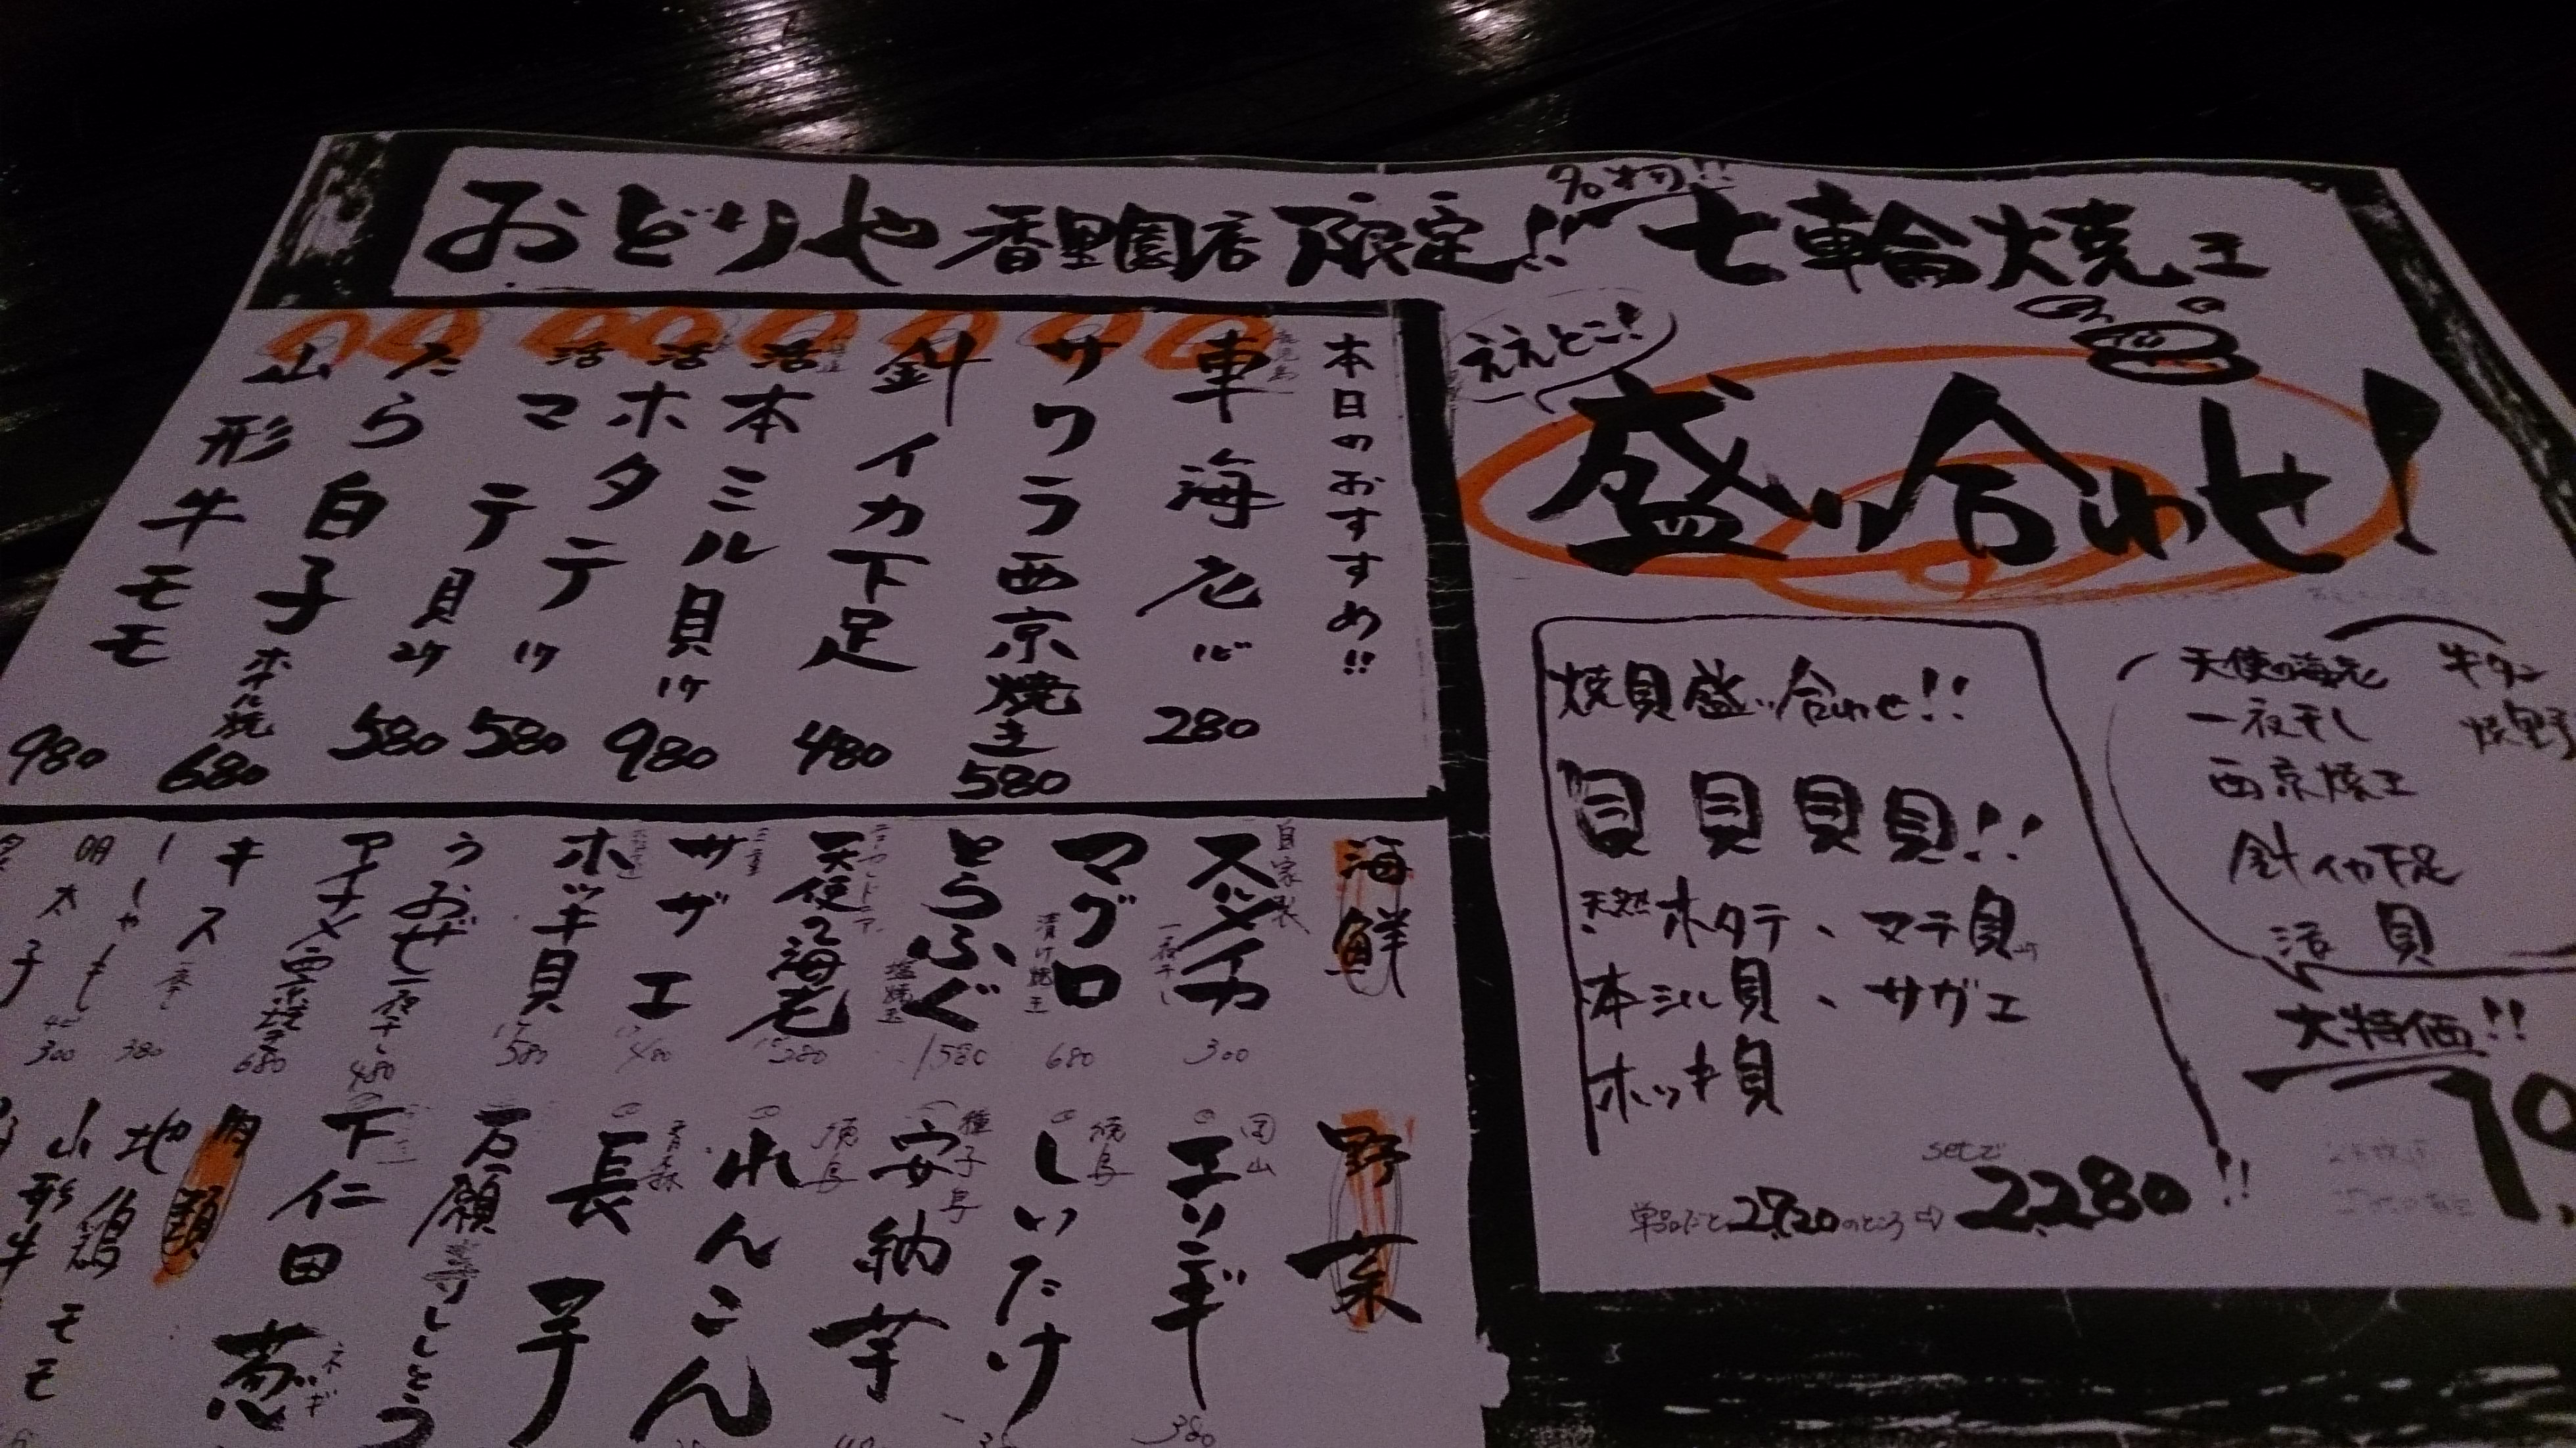 おどりや香里園店限定!! 名物!! 七輪焼き
本日のおすすめ!!
車海老 280
サワラ西京焼き 580
針イカ下足 480
活本ミル貝 1ケ 980
活ホタテ 1ケ 580
活マテ貝 2ケ 580
たら白子ホイル焼 680
山形牛モモ 980
海鮮
自家製 スルメイカ 一夜干し 300
マグロ 漬け焼き 680
とらふぐ 塩焼き 1580
天使の海老 280
三重 サザエ 480
ホッキ貝 580
うおぜ一夜干し 480
アイナメ西京焼き 680
キス 380
ししゃも 300
明太子
野菜
岡山 エリンギ 380
徳島 しいたけ
種子島 安納芋
徳島 れんこん
青森 長芋
万願寺ししとう
下仁田葱 ネギ
肉類
地鶏モモ
山形牛
ええとこ!
盛り合わせ!
焼貝盛り合わせ!!
貝貝貝貝!!
天然ホタテ、マテ貝
本ミル貝、サザエ
ホッキ貝
setで
単品だと2720のところ⇨2280!!
天使の海老
一夜干し
西京焼き
針イカ下足
活貝
牛タン
焼野
大特価!!